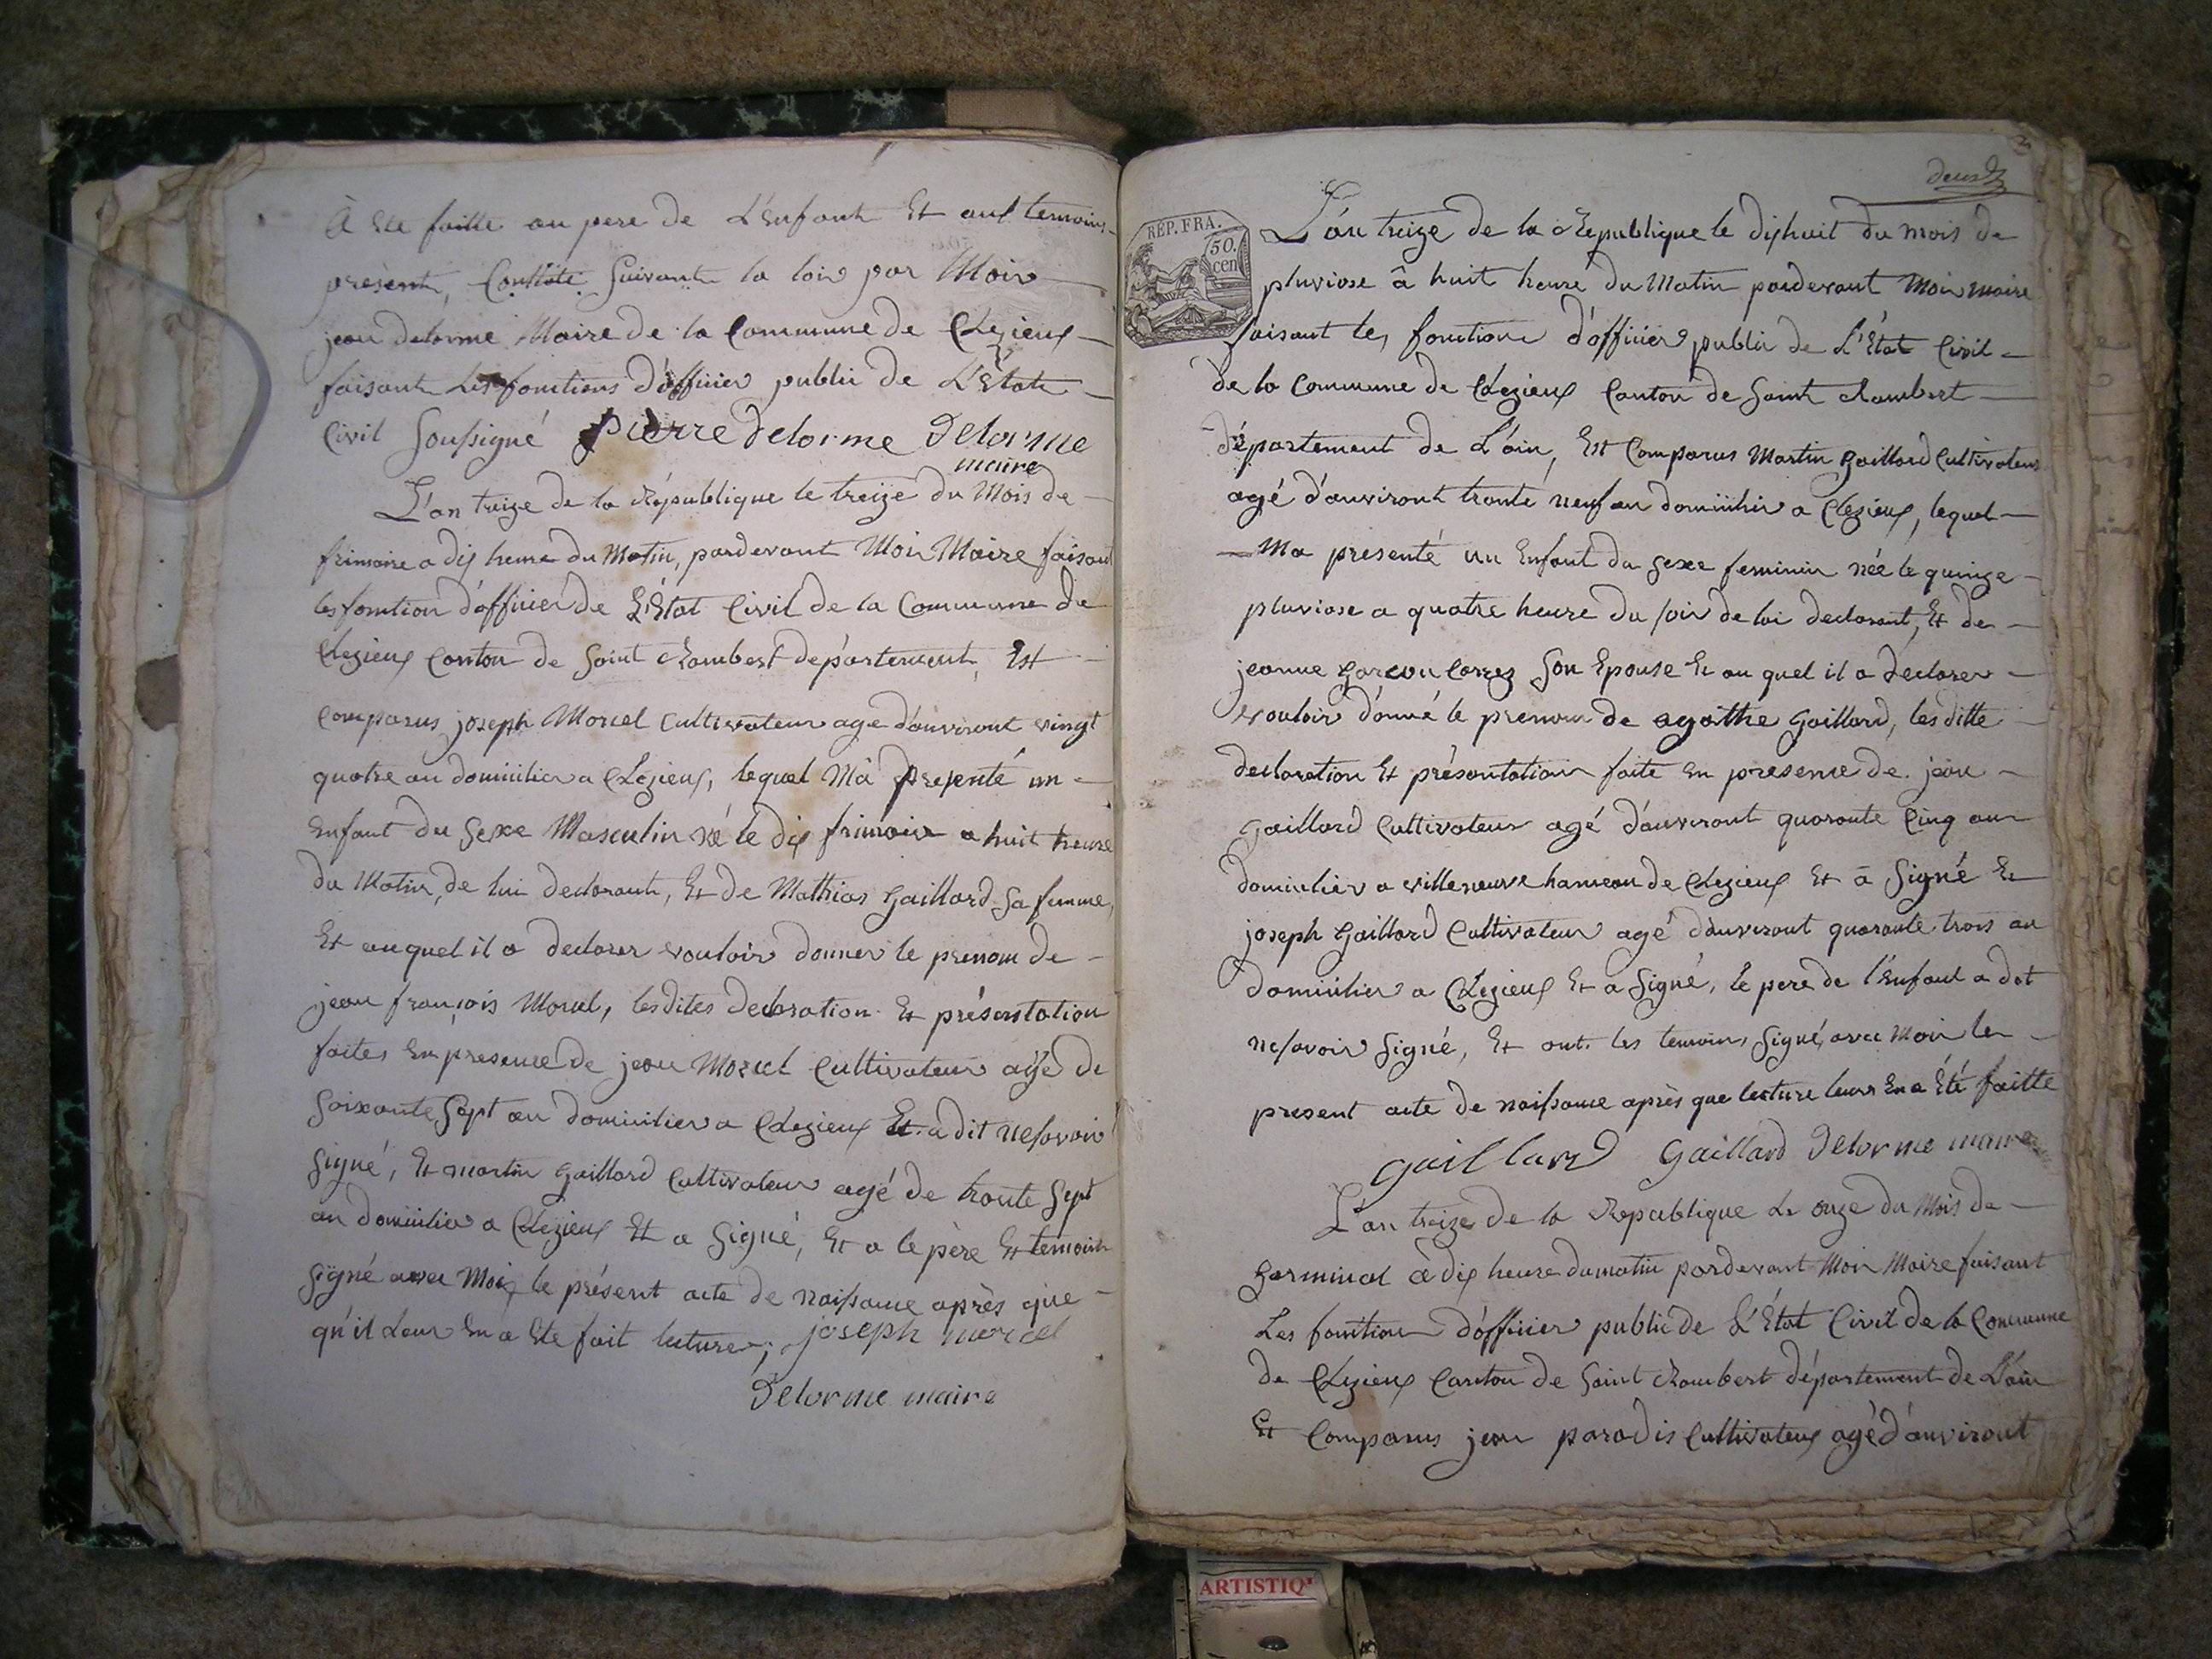 À Ete faitte au pere de L'Enfant Et aux temoins
présent, Constaté Suivant la loix par Moi
jean delorme Maire de la Commune de Clezieux
faisant Les fonctions d'officier public de L'Etat
Civil Soussigné pierre delorme Delorme
maire
L'an treize de la République le treize du Mois de
frimaire a dix heure du Matin, pardevant Moi Maire faisant
les fonction d'officier de L'Etat Civil de la Commune de
Clezieux Canton de Saint Rambert département, Est
Comparus joseph Morcel Cultivateur agé d'anviront vingt
quatre an domicilier a Clezieux, lequel Mà presenté un
Enfant du Sexe Masculin né le dix frimaire a huit heure
du Matin, de lui declarant, Et de Mathias Gaillard Sa femme,
Et auquel il a declarer vouloir donner le prenom de
jean françois Morcel, lesdites declaration Et présentation
faites En presence de jean Morcel Cultivateur agé de
Soixante Sept an domicilier a Clezieux Et a dit ne savoir
Signé, Et martin gaillard Cultivateur agé de trante Sept
an domicilier a Clezieux Et a Signé, Et a le père Et temoin
Signé avec Moi le présent acte de naissance après que
qu'il Leur En a Ete fait lecture, joseph morcel
Delorme maire
deux
RÉP. FRA.
50.
cen
L'an treize de la Republique le dixhuit du mois de
pluviose â huit heure du Matin pardevant Moi maire
faisant les fonction d'officier public de L'État Civil
de la Commune de Clezieux Canton de Saint Rambert
département de L'ain, Est Comparus Martin Gaillard Cultivateur
agé d'anviront trante neuf an domicilier a Clezieux, lequel
Ma presenté un Enfant du Sexe feminin née le quinze
pluviose a quatre heure du soir de lui declarant, Et de
jeanne Son Epouse Et au quel il a declarer
vouloir donné le prenom de agathe Gaillard, les ditte
declaration Et présentation faite En presence de jean
Gaillard Cultivateur agé d'anviront quarante Cinq an
domicilier a villeneuve hameau de Clezieux Et a Signé Et
joseph Gaillard Cultivateur agé d'anviront quarante trois an
domicilier a Clezieux Et a Signé, le pere de l'Enfant a dit
ne savoir Signé, Et ont les temoins Signé, avec Moi le
present acte de naissance après que lecture leurs En a Été faitte
gaillard Gaillard Delorme maire
L'an treize de la Republique Le onze du Mois de
Germinal a dix heure du matin pardevant Moi Maire faisant
Les fonction d'officier public de L'État Civil de la Commune
de Clezieux Canton de Saint Rambert département de L'ain
Et Comparus jean paradis Cultivateur agé d'anviront
ARTISTIQ